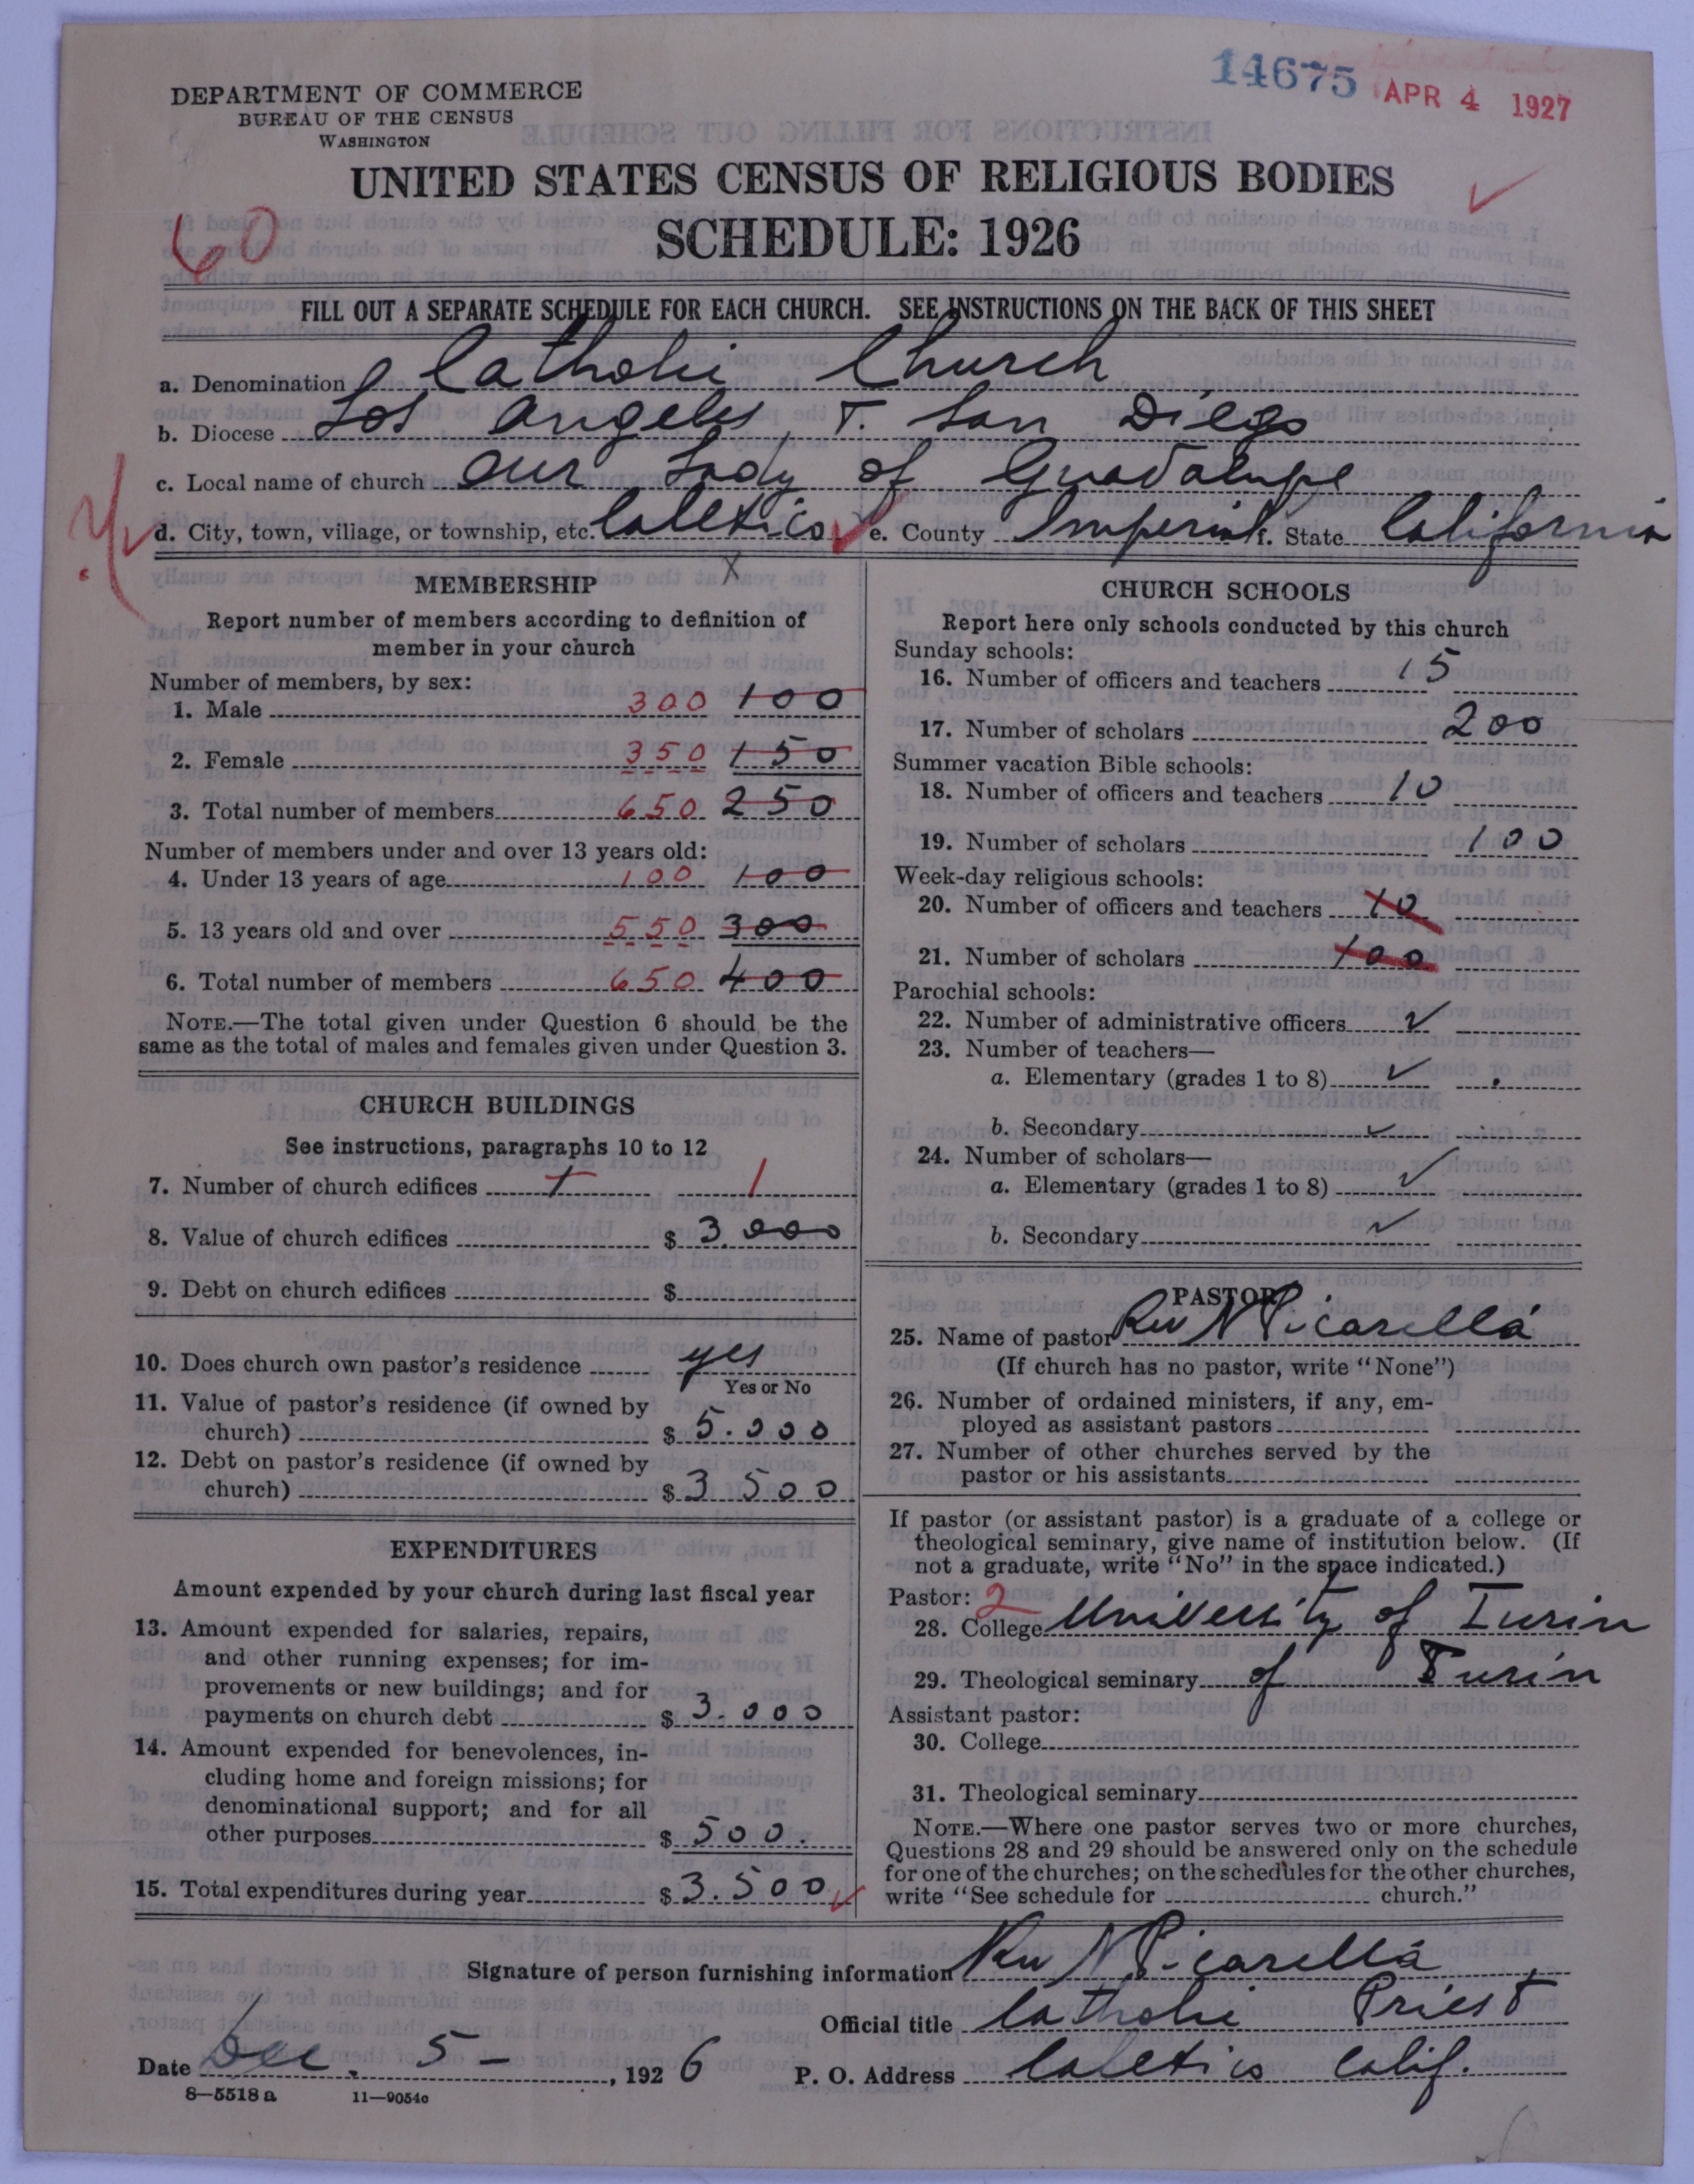 14675 APR 4 1927
DEPARTMENT OF COMMERCE
BUREAU OF THE CENSUS
WASHINGTON
UNITED STATES CENSUS OF RELIGIOUS BODIES
SCHEDULE: 1926
60
FILL OUT A SEPARATE SCHEDULE FOR EACH CHURCH. SEE INSTRUCTIONS ON THE BACK OF THIS SHEET
a. Denomination Catholic Church
b. Diocese Los Angeles, T. San Diego
c. Local name of church Our Lady of Guadalupe
d. City, town, village, or township, etc. Calexico e. County Imperial f. State California
MEMBERSHIP
Report number of members according to definition of
member in your church
Number of members, by sex:
1. Male 300 100
2. Female 350 150
3. Total number of members 650 250
Number of members under and over 13 years old:
4. Under 13 years of age 100 100
5. 13 years old and over 550 300
6. Total number of members 650 400
NOTE.—The total given under Question 6 should be the
same as the total of males and females given under Question 3.
CHURCH BUILDINGS
See instructions, paragraphs 10 to 12
7. Number of church edifices 1 1
8. Value of church edifices $ 3.000
9. Debt on church edifices $
10. Does church own pastor's residence yes
Yes or No
11. Value of pastor's residence (if owned by
church) $ 5.000
12. Debt on pastor's residence (if owned by
church) $ 3 500
EXPENDITURES
Amount expended by your church during last fiscal year
13. Amount expended for salaries, repairs,
and other running expenses; for im-
provements or new buildings; and for
payments on church debt $ 3.000
14. Amount expended for benevolences, in-
cluding home and foreign missions; for
denominational support; and for all
other purposes $ 500.
15. Total expenditures during year $ 3.500
CHURCH SCHOOLS
Report here only schools conducted by this church
Sunday schools:
16. Number of officers and teachers 15
17. Number of scholars 200
Summer vacation Bible schools:
18. Number of officers and teachers 10
19. Number of scholars 100
Week-day religious schools:
20. Number of officers and teachers 10
21. Number of scholars 100
Parochial schools:
22. Number of administrative officers ✓
23. Number of teachers—
a. Elementary (grades 1 to 8) ✓
b. Secondary ✓
24. Number of scholars—
a. Elementary (grades 1 to 8) ✓
b. Secondary ✓
PASTOR
25. Name of pastor Rev N Picarella
(If church has no pastor, write "None")
26. Number of ordained ministers, if any, em-
ployed as assistant pastors
27. Number of other churches served by the
pastor or his assistants
If pastor (or assistant pastor) is a graduate of a college or
theological seminary, give name of institution below. (If
not a graduate, write "No" in the space indicated.)
Pastor: 2
28. College University of Turin
29. Theological seminary of Turin
Assistant pastor:
30. College
31. Theological seminary
NOTE.—Where one pastor serves two or more churches,
Questions 28 and 29 should be answered only on the schedule
for one of the churches; on the schedules for the other churches,
write "See schedule for church."
Signature of person furnishing information Rev N Picarella
Official title Catholic Priest
Date Dec. 5 - , 1926 P. O. Address Calexico Calif.
8—5518a 11—9054c